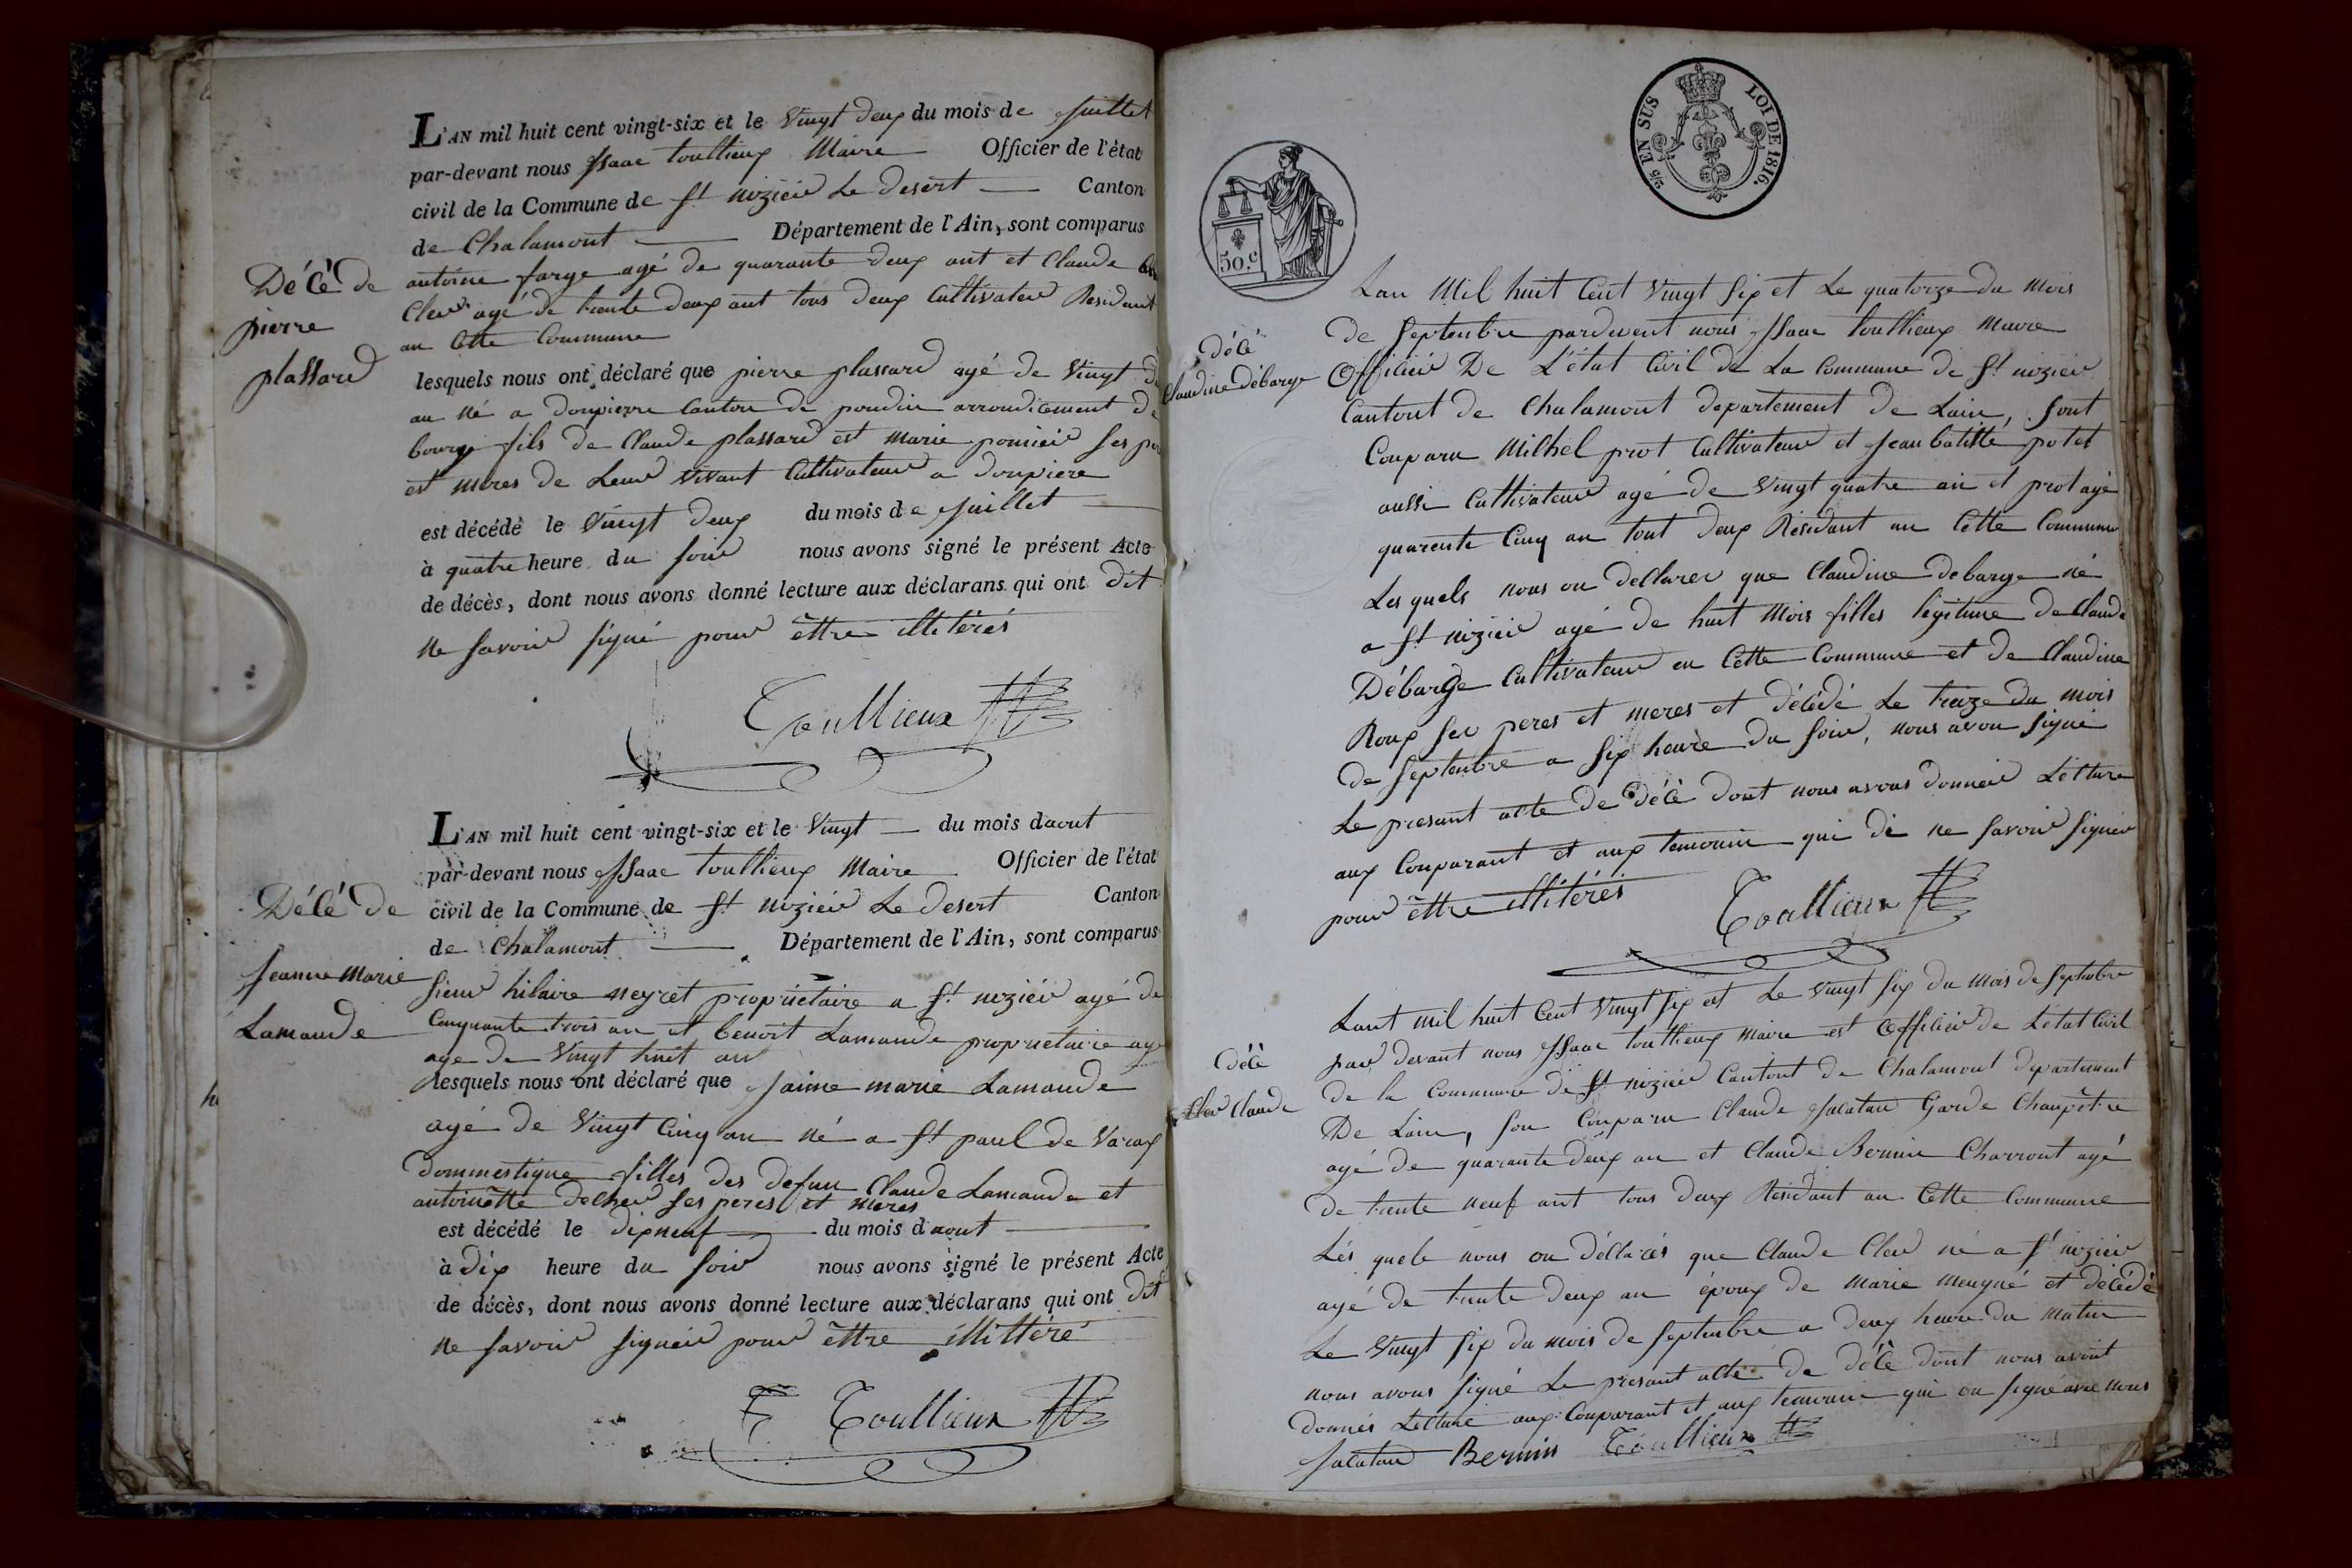 L'AN mil huit cent vingt-six et le Vingt Deux du mois de Juillet
par-devant nous Isaac toullieux Maire Officier de l'état
civil de la Commune de St nizier Le Desert Canton
de Chalamont Département de l'Ain, sont comparus
Décé de
pierre
plassard
antoine farge agé de quarante deux ant et Claude
Cler agé de trente deux ant tous deux Cultivateur Residant
an Cette Commune
lesquels nous ont déclaré que pierre plassard agé de Vingt
an né a donpierre Canton de pondin arrondicement de
bourge fils de Claude plassard est marie ses
est meres de Leur vivant Cultivateur a donpiere
est décédé le Vingt deux du mois de Juillet
à quatre heure du soir nous avons signé le présent Acte
de décès, dont nous avons donné lecture aux déclarans qui ont dit
ne savoir signé pour êttre illitérés
Toullieux
L'AN mil huit cent vingt-six et le Vingt du mois daout
par-devant nous Isaac toullieux Maire Officier de l'état
civil de la Commune de St nizier Le Desert Canton
de Chalamont Département de l'Ain, sont comparus
Décé de
Jeanne Marie
Lamande
sieur hilaire neyret propriétaire a St nizier agé de
Cinquante trois an et benoit Lamande proprietaire agé
age de Vingt huit ant
lesquels nous ont déclaré que Jaime marie Lamande
agé de Vingt Cinq an né a St paul de Varax
dommestique filles des defun Claude Lamande et
antoinètte ses peres et meres
est décédé le dixneuf du mois daout
à dix heure du soir nous avons signé le présent Acte
de décès, dont nous avons donné lecture aux déclarans qui ont dit
ne savoir signéir pour êttre illittéré
Toullieux
2/5 EN SUS LOI DE 1816.
50.c
Décé
Claudine débarge
Lan Mil huit Cent Vingt six et Le quatorze du Mois
de septembre pardevent nous Isaac toullieux Maire
Officier De L'état Civil de La Commune de St nizier
Cantont de Chalamont departement de Lain, sont
Conparu Milhel prot Cultivateur et Jean batitte potet
aussi Cultivateur agé de Vingt quatre an et prot agé
quarente Cinq an tout deux Résidant an Cette Commune
Les quels nous on decларer que Claudine debarge né
a St nizier agé de huit Mois filles légitime de Claude
Débarge Cultivateur en Cette Commune et de Claudine
Roux ses peres et meres et décédé Le treize du mois
de septembre a six heure du soir, nous avon signé
Le presant acte de décé dont nous avons donneir Létture
aux Conparant et aux temouin qui di ne savoir signer
pour êttre illitérés Toullieux
Décé
Cler Claude
Lant mil huit Cent Vingt six et Le Vingt six du Mois de septembre
par devant nous Isaac toullieux maire est Officier de Létat Civil
de la Commune de St nizier Cantont de Chalamont departement
De Lain, son Conparu Claude Jalatar Garde Chanpêtre
agé de quarante deux an et Claude Bernin Charront agé
de trente neuf ant tous deux Résidant an Cette Commune
Lés quele nous on déclarés que Claude Cler né a St nizier
agé de trente deux an époux de marie meugné et décédé
Le Vingt six du mois de septembre a deux heure du matin
nous avons signé Le presant acte de décé dont nous avont
donnés Letture aux Conparant et aux temouin qui on signé avec nous
Jalatar Bernin Toullieux